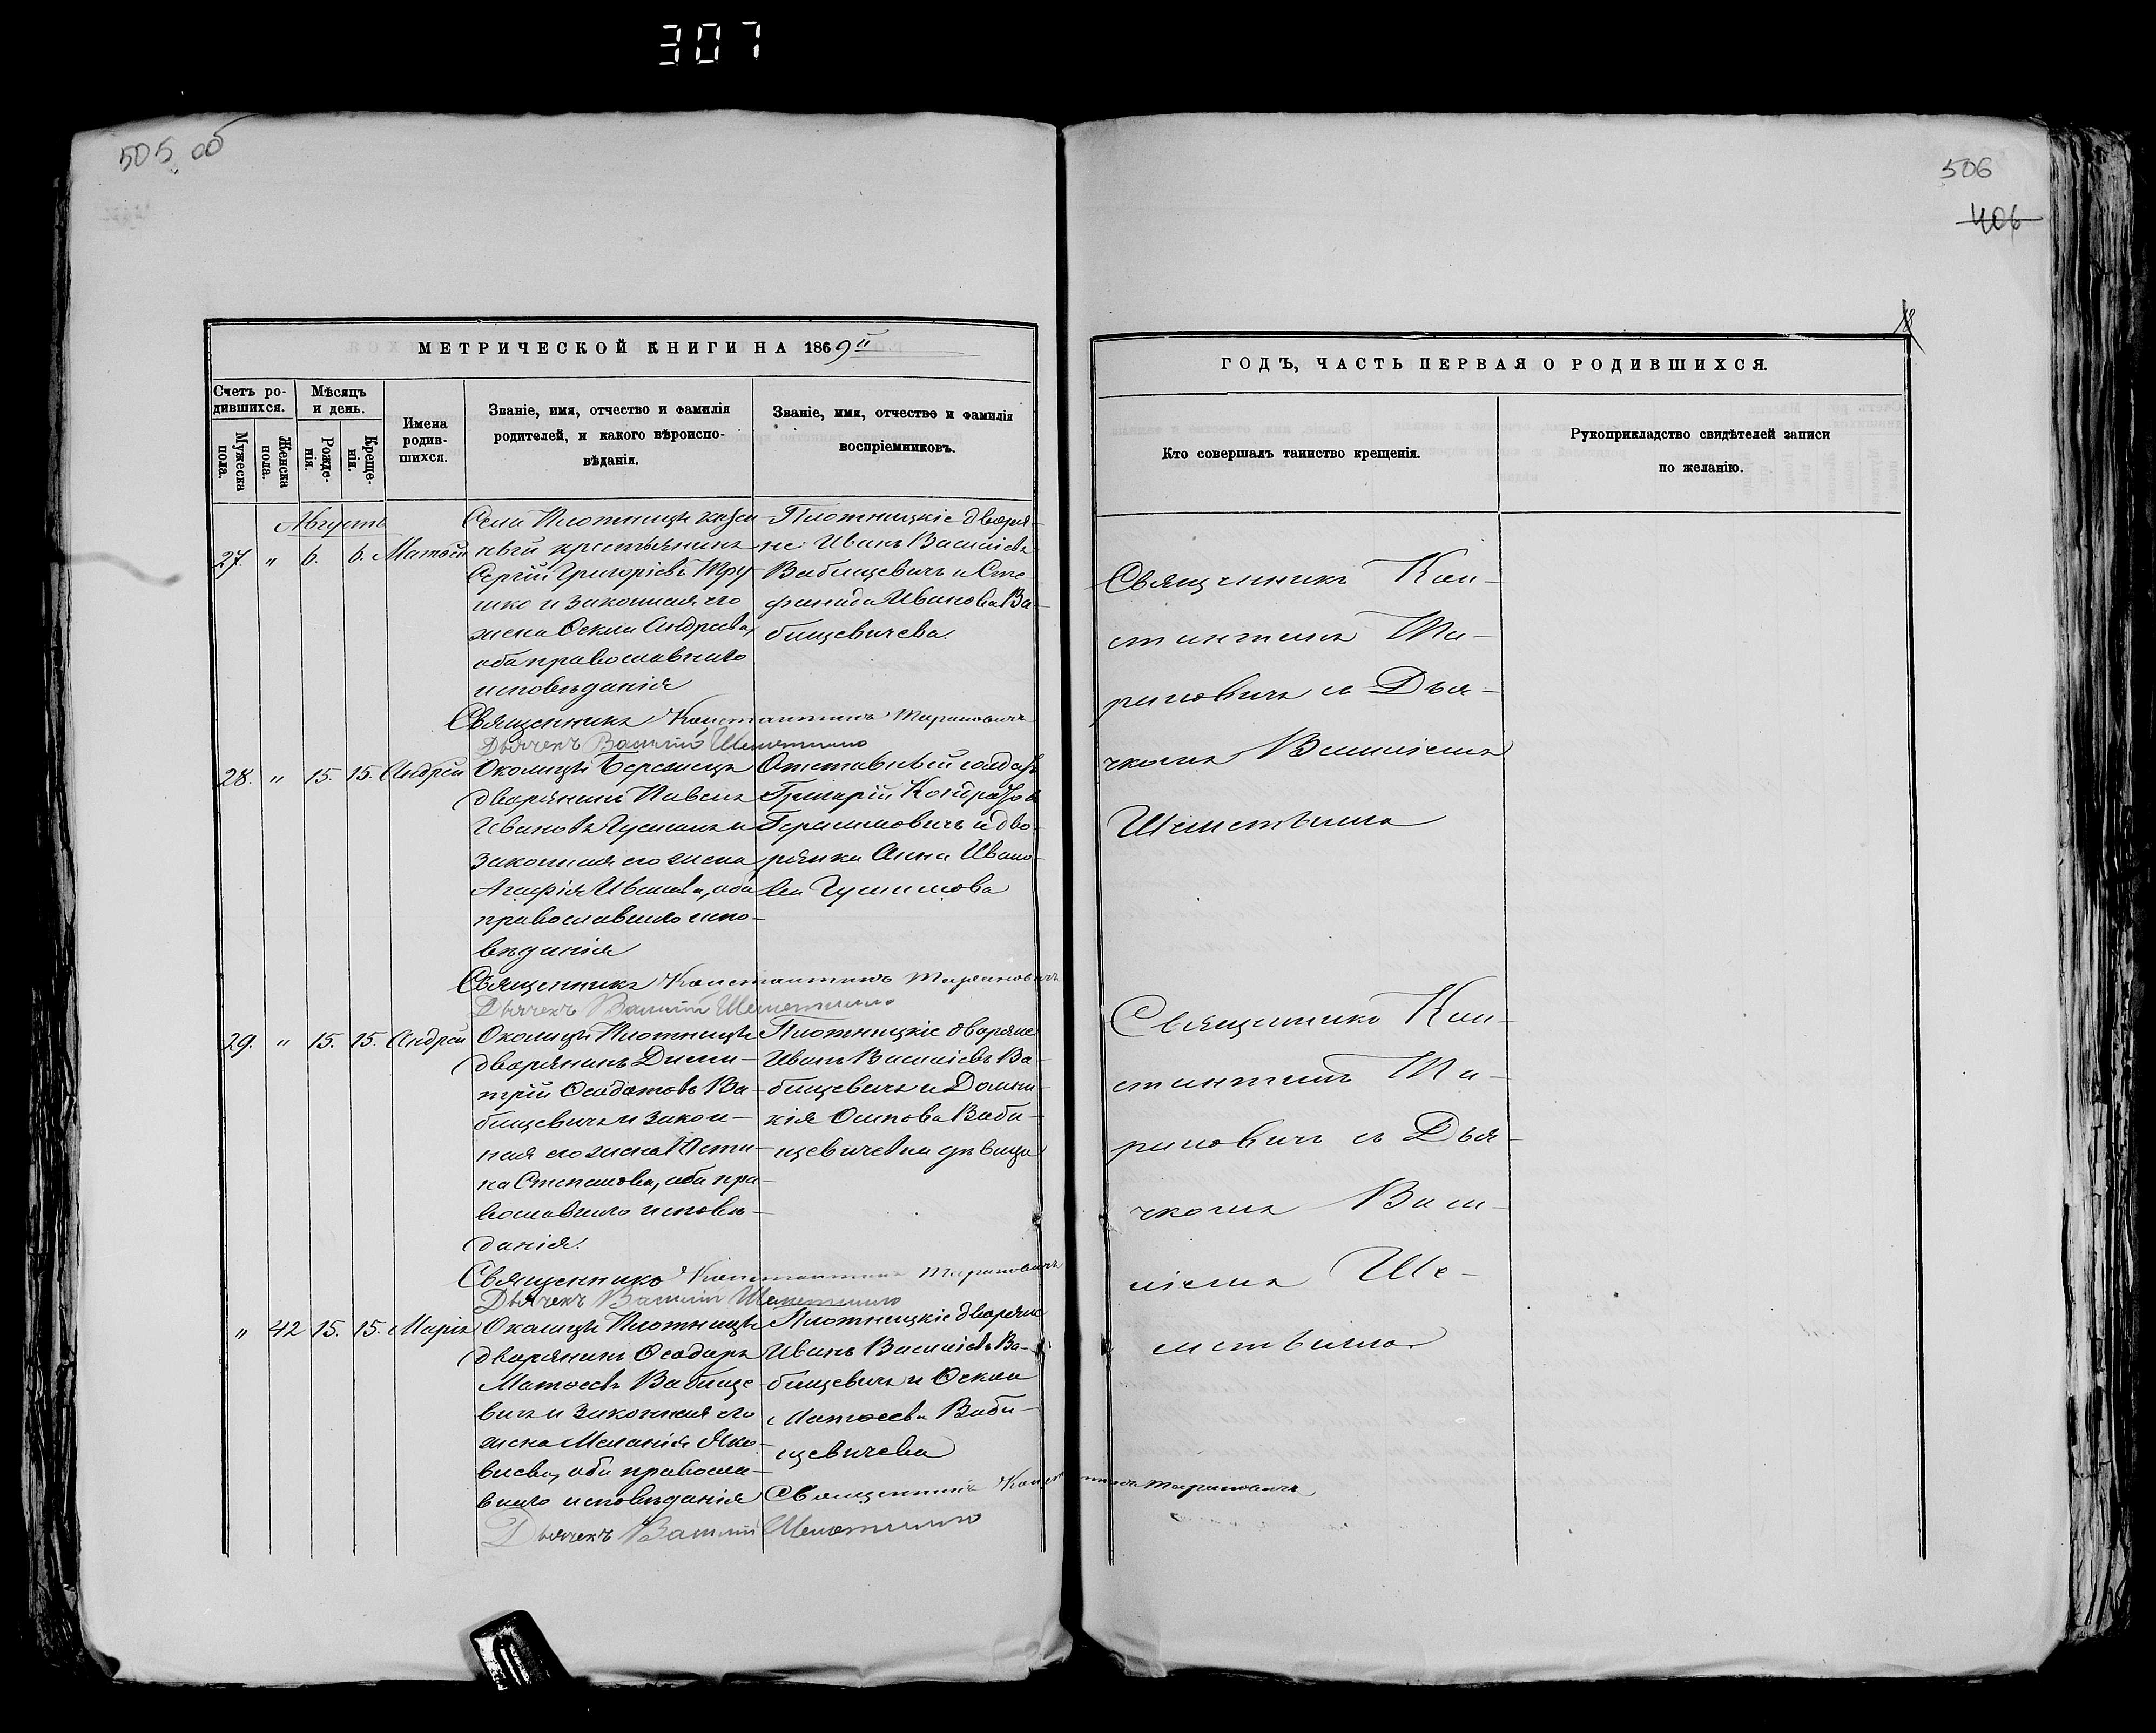 307
505 об
506
406
18
МЕТРИЧЕСКОЙ КНИГИ НА 1869й
Счетъ ро-
дившихся.
Мѣсяцъ
и день.
Мужеска
пола.
Женска
пола.
Рожде-
нія.
Креще-
нія.
Имена
родив-
шихся.
Званіе, имя, отчество и фамилія
родителей, и какого вѣроиспо-
вѣданія.
Званіе, имя, отчество и фамилія
воспріемниковъ.
Августъ
27. " 6. 6. Матѳей
Села Плотницы казен-
ный крестьянинъ
Сергій Григоріевъ
и законная его
жена Андреева,
оба православнаго
исповѣданія
Плотницкіе дворя-
не Иванъ Василіевъ
Вабищевичъ и Сте-
фанида Иванова Ва-
бищевичева.
Священникъ Константинъ Тариановичъ
Дьячекъ Василій
28. " 15. 15. Андрей
Околицы Бережцы
дворянинъ Павелъ
Ивановъ и
законная его жена
Агафія Иванова, оба
православнаго испо-
вѣданія
Отставный солдатъ
Григорій Кондратов
Герасимовичъ и дво-
рянка Анна Ивано-
ва
Священникъ Константинъ
Дьячекъ Василій
29. " 15. 15. Андрей
Околицы Плотницы
дворянинъ Дими-
трій Ва-
бищевичъ и закон-
ная его жена Юсти-
на Степанова, оба пра-
вославнаго исповѣ-
данія.
Плотницкіе дворяне
Иванъ Василіевъ Ва-
бищевичъ и Домни-
кія Осипова Ваби-
щевичевна дѣвица
Священникъ Константинъ
Дьячекъ Василій
" 42 15. 15. Марія
Околицы Плотницы
дворянинъ Ѳеодоръ
Матѳеевъ Вабище-
вичъ и законная его
жена Меланія Яко-
влева, оба православ-
внаго исповѣданія
Плотницкіе дворяне
Иванъ Василіевъ Ва-
бищевичъ и
Матѳеева Ваби-
щевичева
Священникъ Константинъ
Дьячекъ Василій
ГОДЪ, ЧАСТЬ ПЕРВАЯ О РОДИВШИХСЯ.
Кто совершалъ таинство крещенія.
Рукоприкладство свидѣтелей записи
по желанію.
Священникъ Кон-
стантинъ
съ Дья-
чкомъ Василіемъ
Священникъ Кон-
стантинъ
съ Дья-
чкомъ Васи-
ліемъ